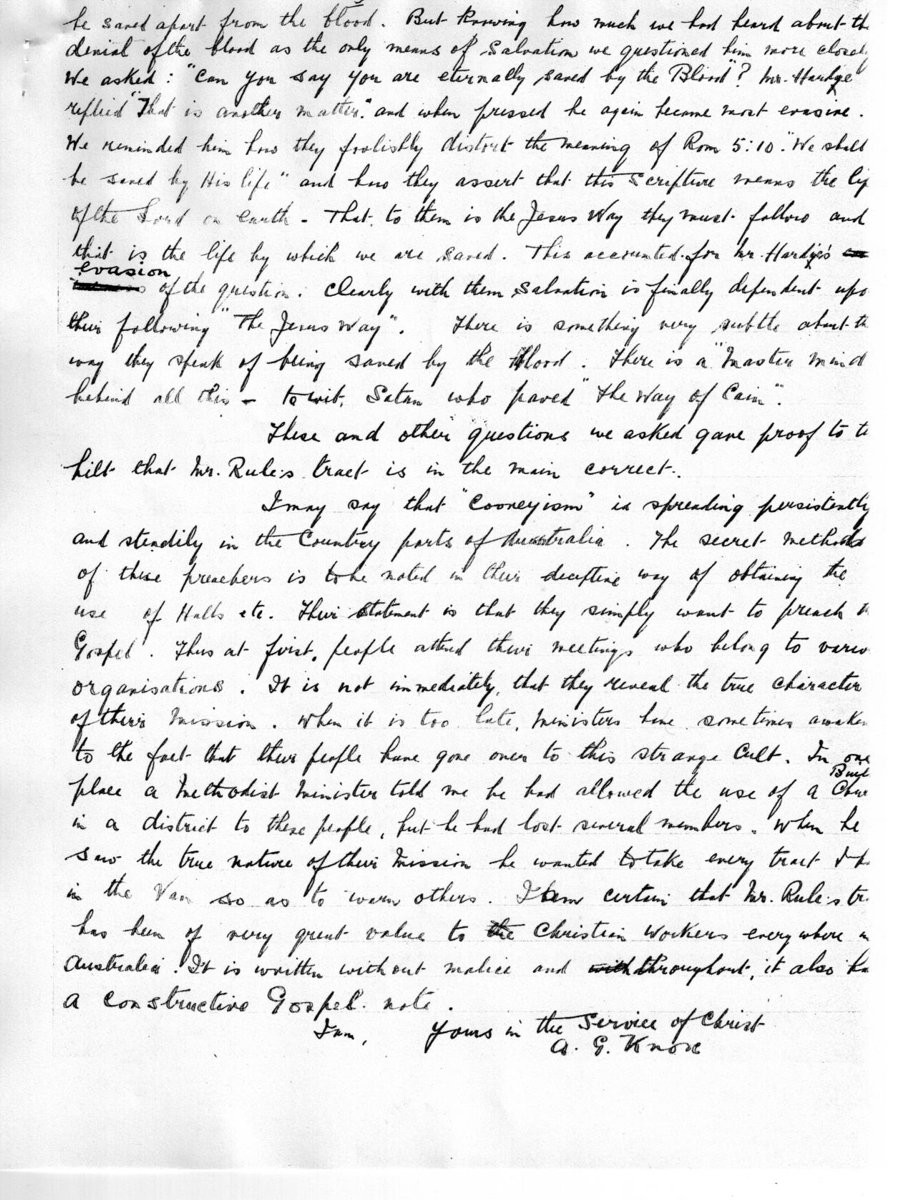 be saved apart from the blood. But knowing how much we had heard about th
denial of the blood as the only means of Salvation we questioned him more closel
We asked: "Can you say you are eternally saved by the Blood"? Mr. Hardge
replied "That is another matter" and when pressed he again became most evasive.
We reminded him how they foolishly distort the meaning of Rom 5:10 "We shall
be saved by His life" and how they assert that this Scripture means the lif
of the Lord on earth - That to them is the Jesus Way they must follow and
that is the life by which we are saved. This accounted for Mr. Hardge's
evasion of the question. Clearly with them Salvation is finally dependent upo
their following "The Jesus Way". There is something very subtle about th
way they speak of being saved by the Blood. There is a "Master mind
behind all this - to wit, Satan who paved "The Way of Cain".
These and other questions we asked gave proof to t
hilt that Mr. Rule's tract is in the main correct.
I may say that "Cooneyism" is spreading persistently
and steadily in the Country parts of Australia. The secret methods
of these preachers is to be noted in their deceptive way of obtaining the
use of Halls etc. Their statement is that they simply want to preach
Gospel. Thus at first, people attend their meetings who belong to vario
organisations. It is not immediately, that they reveal the true character
of their Mission. When it is too late, Ministers have sometimes awaken
to the fact that their people have gone over to this strange Cult. In one
place a Methodist Minister told me he had allowed the use of a
in a district to these people, but he had lost several members. When he
saw the true nature of their Mission he wanted to take every tract I h
in the Van so as to warn others. I am certain that Mr. Rule's tr
has been of very great value to the Christian Workers everywhere in
Australia. It is written without malice and throughout, it also ha
a constructive Gospel note.
I am, Yours in the Service of Christ
A. G. Knox